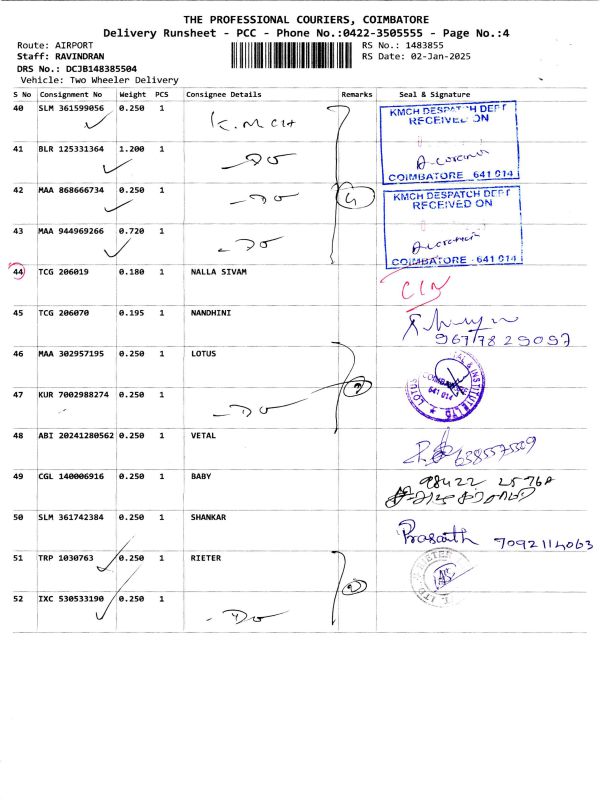 THE PROFESSIONAL COURIERS, COIMBATORE
Delivery Runsheet - PCC - Phone No.:0422-3505555 - Page No.:4
Route: AIRPORT RS No.: 1483855
Staff: RAVINDRAN RS Date: 02-Jan-2025
DRS No.: DCJB148385504
Vehicle: Two Wheeler Delivery
S No Consignment No Weight PCS Consignee Details Remarks Seal & Signature
40 SLM 361599056 0.250 1 K.MCH
KMCH DESPATCH DEPT
RECEIVED ON
COIMBATORE - 641 014
41 BLR 125331364 1.200 1 - Do
42 MAA 868666734 0.250 1 - Do 4
KMCH DESPATCH DEPT
RECEIVED ON
COIMBATORE - 641 014
43 MAA 944969266 0.720 1 - Do
44 TCG 206019 0.180 1 NALLA SIVAM
45 TCG 206070 0.195 1 NANDHINI
46 MAA 302957195 0.250 1 LOTUS
47 KUR 7002988274 0.250 1 - Do 2
48 ABI 20241280562 0.250 1 VETAL
49 CGL 140006916 0.250 1 BABY 98422 25768
50 SLM 361742384 0.250 1 SHANKAR Prasath 7092114063
51 TRP 1030763 0.250 1 RIETER 2
52 IXC 530533190 0.250 1 - Do